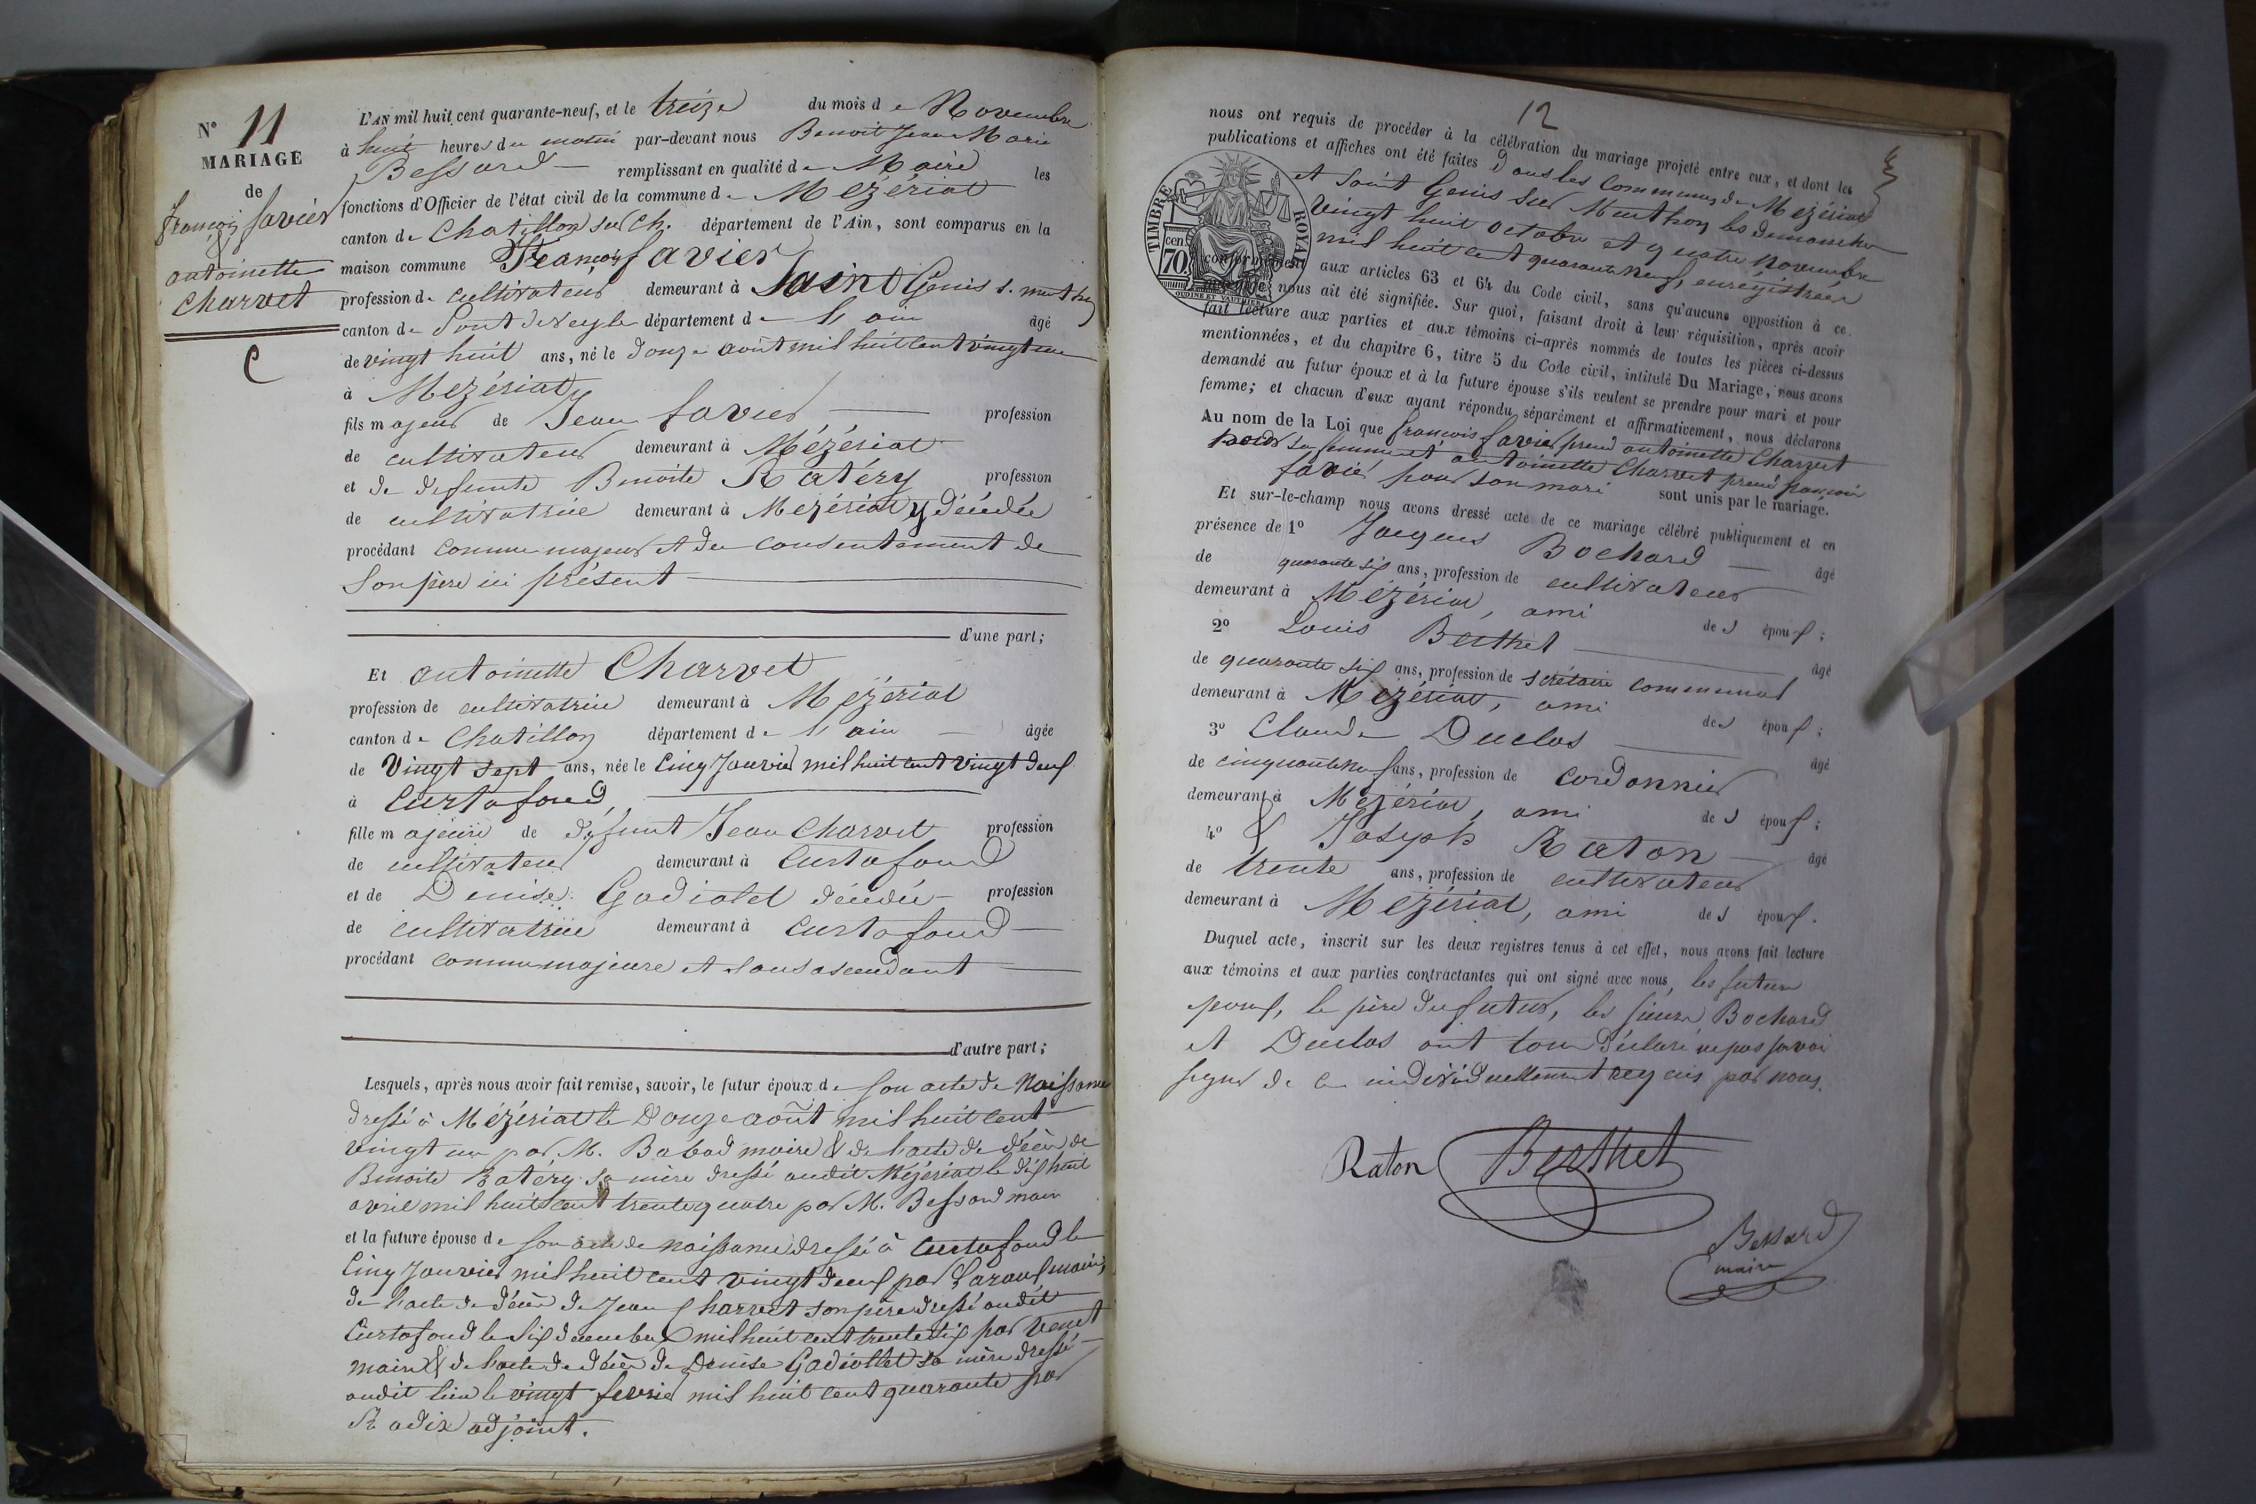 N° 11
MARIAGE
de
françois favier
&
antoinette
Charvet
C
L'AN mil huit cent quarante-neuf, et le treize du mois de Novembre
à huit heures du matin par-devant nous Benoit Jean Marie
Bessard remplissant en qualité de Maire les
fonctions d'Officier de l'état civil de la commune de Mézériat
canton de Chatillon sur Ch. département de l'Ain, sont comparus en la
maison commune François favier
profession de cultivateur demeurant à Saint Genis s. menthon
canton de Pont de veyle département de l'ain âgé
de vingt huit ans, né le douze août mil huit cent vingt un
à Mézériat
fils majeur de Jean favier profession
de cultivateur demeurant à Mézériat
et de defunte Benoite Ratéry profession
de cultivatrice demeurant à Mézériat y décédée
procédant comme majeur et du consentement de
son père ici présent
d'une part;
Et antoinette Charvet
profession de cultivatrice demeurant à Mézériat
canton de Chatillon département de l'ain âgée
de vingt sept ans, née le cinq Janvier mil huit cent vingt deux
à Curtafond,
fille majeure de défunt Jean Charvet profession
de cultivateur demeurant à Curtafond
et de Denise Gadiolet décédée profession
de cultivatrice demeurant à Curtafond
procédant comme majeure et sans ascendant
d'autre part;
Lesquels, après nous avoir fait remise, savoir, le futur époux de son acte de Naissance
dressé à Mézériat le Douze août mil huit cent
vingt un par M. Babad maire & de l'acte de décès de
Benoite Ratéry sa mère dressé audit Mézériat le dix huit
avril mil huit cent trente quatre par M. Bessard maire
et la future épouse de son acte de naissance dressé à Curtafond le
cinq Janvier mil huit cent vingt deux par maire,
de l'acte de décès de Jean Charvet son père dressé audit
Curtafond le six decembre mil huit cent trente six par Venet
maire & de l'acte de décès de Denise Gadiollet sa mère dressé
audit lieu le vingt fevrier mil huit cent quarante par
Radix adjoint.
12
nous ont requis de procéder à la célébration du mariage projeté entre eux, et dont les
publications et affiches ont été faites dans les communes de Mézériat
et Saint Genis sur Menthon les dimanches
vingt huit octobre et quatre Novembre
mil huit cent quarante neuf, enrégistrées
TIMBRE ROYAL
70 cen.
conformément aux articles 63 et 64 du Code civil, sans qu'aucune opposition à ce
mariage nous ait été signifiée. Sur quoi, faisant droit à leur réquisition, après avoir
fait lecture aux parties et aux témoins ci-après nommés de toutes les pièces ci-dessus
mentionnées, et du chapitre 6, titre 5 du Code civil, intitulé Du Mariage, nous avons
demandé au futur époux et à la future épouse s'ils veulent se prendre pour mari et pour
femme; et chacun d'eux ayant répondu séparément et affirmativement, nous déclarons
Au nom de la Loi que françois favier prend antoinette Charvet
pour sa femme et antoinette Charvet prend françois
favier pour son mari sont unis par le mariage.
Et sur-le-champ nous avons dressé acte de ce mariage célébré publiquement et en
présence de 1° Jacques Bochard âgé
de quarante six ans, profession de cultivateur
demeurant à Mézériat, ami des époux;
2° Louis Berthet âgé
de quarante six ans, profession de secrétaire communal
demeurant à Mézériat, ami des époux;
3° Claude Duclos âgé
de cinquante neuf ans, profession de cordonnier
demeurant à Mézériat, ami des époux;
4° & Joseph Raton âgé
de trente ans, profession de cultivateur
demeurant à Mézériat, ami des époux.
Duquel acte, inscrit sur les deux registres tenus à cet effet, nous avons fait lecture
aux témoins et aux parties contractantes qui ont signé avec nous, les futurs
époux, le père du futur, les sieurs Bochard
et Duclos ont tous déclaré ne pas savoir
signer de ce individuellement requis par nous.
Raton Berthet
Bessard
maire